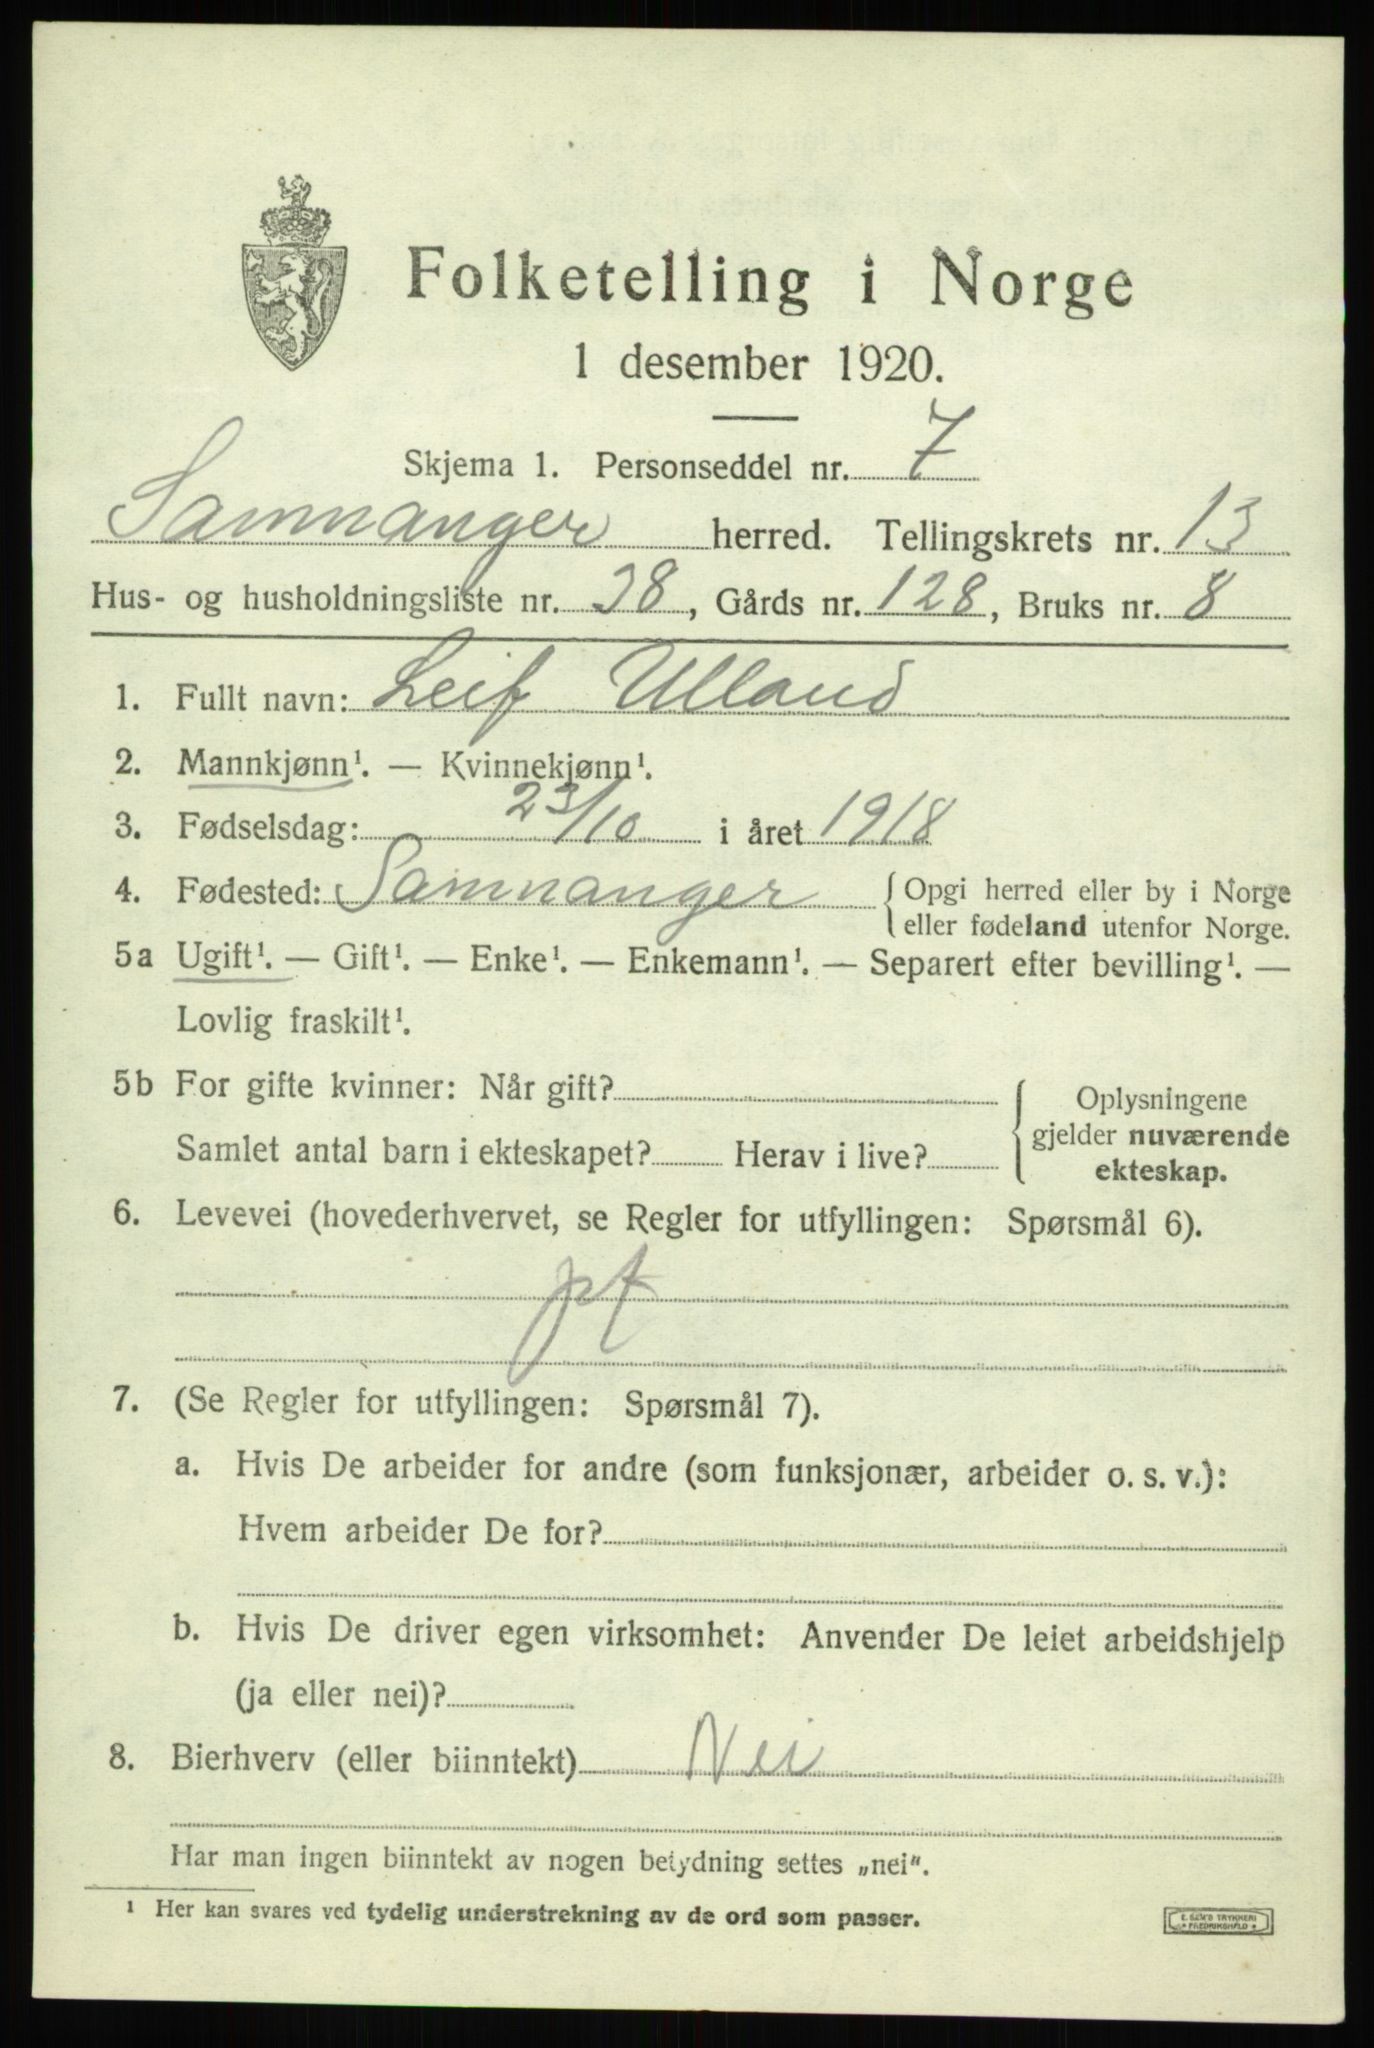 Folketelling i Norge
1 desember 1920.
Skjema 1. Personseddel nr. 7
Samnanger herred. Tellingskrets nr. 13
Hus- og husholdningsliste nr. 38, Gårds nr. 128, Bruks nr. 8
1. Fullt navn: Leif Ulland
2. Mannkjønn¹. — Kvinnekjønn¹.
3. Fødselsdag: 23/10 i året 1918
4. Fødested: Samnanger { Opgi herred eller by i Norge
eller fødeland utenfor Norge.
5a Ugift¹. — Gift¹. — Enke¹. — Enkemann¹. — Separert efter bevilling¹. —
Lovlig fraskilt¹.
5b For gifte kvinner: Når gift?
Samlet antal barn i ekteskapet? Herav i live?
{ Oplysningene
gjelder nuværende
ekteskap.
6. Levevei (hovederhvervet, se Regler for utfyllingen: Spørsmål 6).
pf
7. (Se Regler for utfyllingen: Spørsmål 7).
a. Hvis De arbeider for andre (som funksjonær, arbeider o. s. v.):
Hvem arbeider De for?
b. Hvis De driver egen virksomhet: Anvender De leiet arbeidshjelp
(ja eller nei)?
8. Bierhverv (eller biinntekt) Nei
Har man ingen biinntekt av nogen betydning settes „nei".
¹ Her kan svares ved tydelig understrekning av de ord som passer.
E. SEM'S TRYKKERI
FREDRIKSHALD